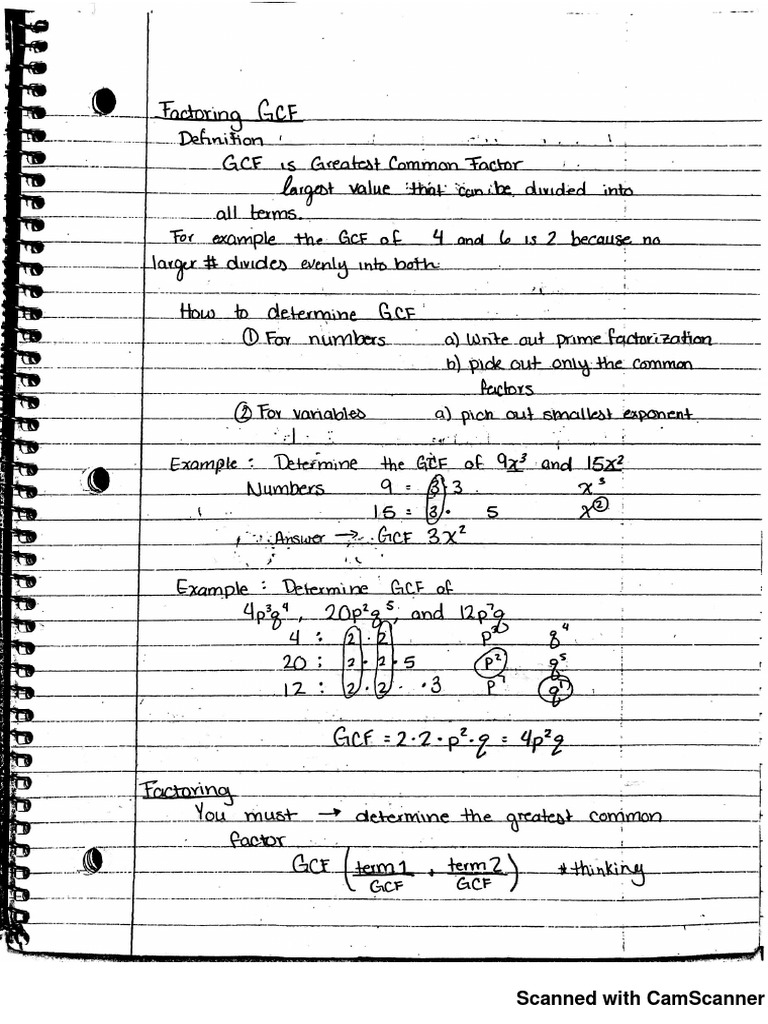 Factoring GCF
Definition
GCF is Greatest Common Factor
largest value that can be divided into
all terms.
For example the GCF of 4 and 6 is 2 because no
larger # divides evenly into both.
How to determine GCF
① For numbers a) Write out prime factorization
b) pick out only the common
factors
② For variables a) pich out smallest exponent
Example: Determine the GCF of 9x³ and 15x²
Numbers 9 = 3·3 x³
15 = 3· 5 x²
Answer → GCF 3x²
Example: Determine GCF of
4p³q⁴, 20p²q⁵, and 12p⁷q
4 : 2·2 q⁴
20 : 2·2·5 p² q⁵
12 : 2·2· ·3 p⁷ q¹
GCF = 2·2·p²·q = 4p²q
Factoring
You must → determine the greatest common
factor
GCF (term 1/GCF + term 2/GCF) *thinking
Scanned with CamScanner